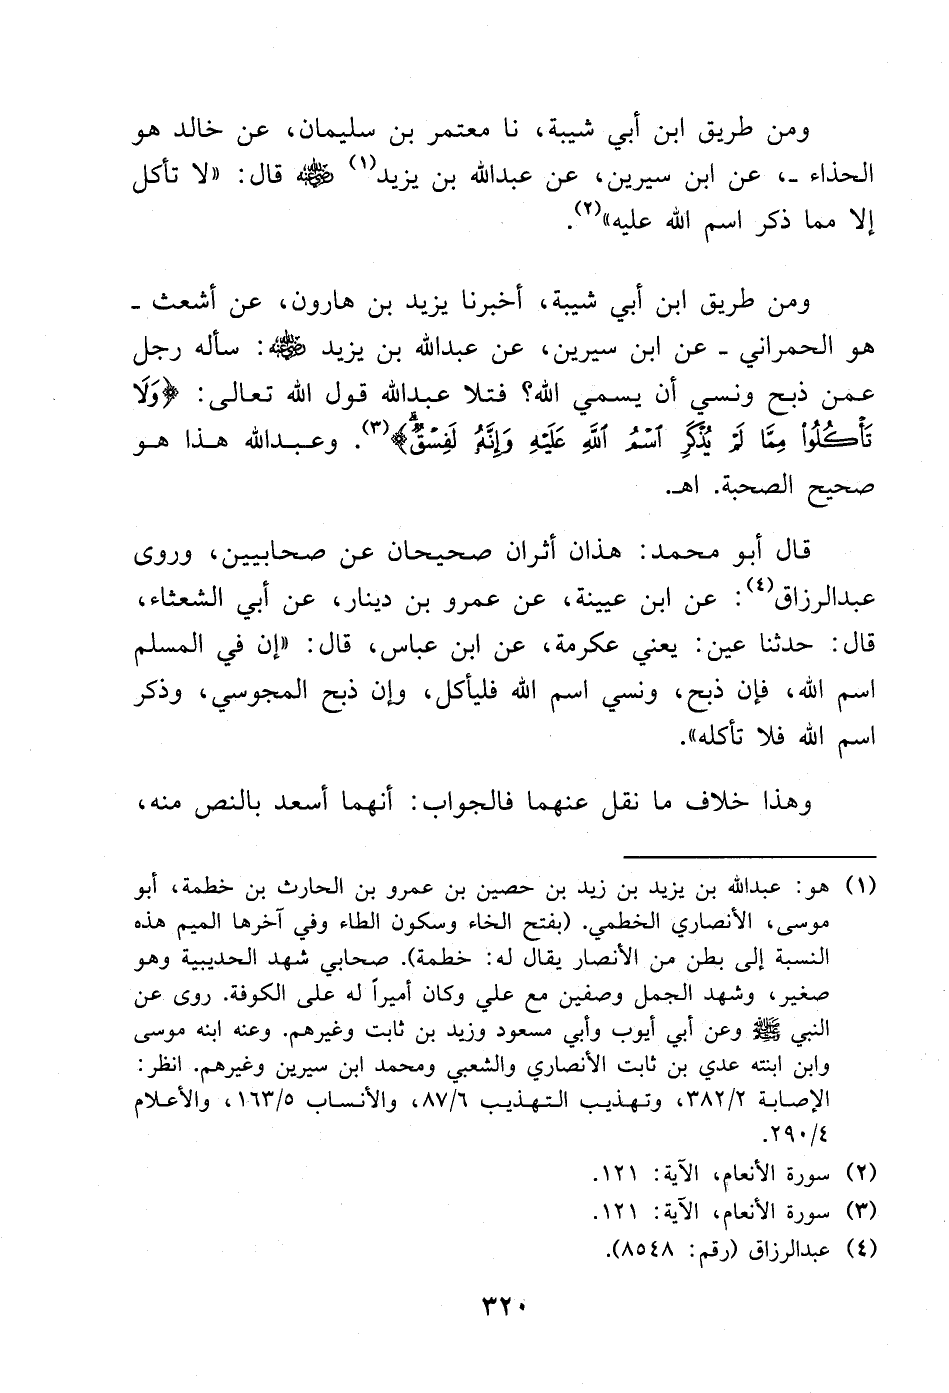 ومن طريق ابن أبي شيبة، نا معتمر بن سليمان، عن خالد هو
الحذاء ـ، عن ابن سيرين، عن عبدالله بن يزيد(١) رضي الله عنه قال: «لا تأكل
إلا مما ذكر اسم الله عليه»(٢).
ومن طريق ابن أبي شيبة، أخبرنا يزيد بن هارون، عن أشعث ـ
هو الحمراني ـ عن ابن سيرين، عن عبدالله بن يزيد رضي الله عنه: سأله رجل
عمن ذبح ونسي أن يسمي الله؟ فتلا عبدالله قول الله تعالى: ﴿وَلَا
تَأْكُلُوا۟ مِمَّا لَمْ يُذْكَرِ ٱسْمُ ٱللَّهِ عَلَيْهِ وَإِنَّهُۥ لَفِسْقٌ ۗ﴾(٣). وعبدالله هذا هو
صحيح الصحبة. اهـ.
قال أبو محمد: هذان أثران صحيحان عن صحابيين، وروى
عبدالرزاق(٤): عن ابن عيينة، عن عمرو بن دينار، عن أبي الشعثاء،
قال: حدثنا عين: يعني عكرمة، عن ابن عباس، قال: «إن في المسلم
اسم الله، فإن ذبح، ونسي اسم الله فليأكل، وإن ذبح المجوسي، وذكر
اسم الله فلا تأكله».
وهذا خلاف ما نقل عنهما فالجواب: أنهما أسعد بالنص منه،
(١) هو: عبدالله بن يزيد بن زيد بن حصين بن عمرو بن الحارث بن خطمة، أبو
موسى، الأنصاري الخطمي. (بفتح الخاء وسكون الطاء وفي آخرها الميم هذه
النسبة إلى بطن من الأنصار يقال له: خطمة). صحابي شهد الحديبية وهو
صغير، وشهد الجمل وصفين مع علي وكان أميراً له على الكوفة. روى عن
النبي ﷺ وعن أبي أيوب وأبي مسعود وزيد بن ثابت وغيرهم. وعنه ابنه موسى
وابن ابنته عدي بن ثابت الأنصاري والشعبي ومحمد ابن سيرين وغيرهم. انظر:
الإصابة ٣٨٢/٢، وتهذيب التهذيب ٨٧/٦، والأنساب ١٦٣/٥، والأعلام
٢٩٠/٤.
(٢) سورة الأنعام، الآية: ١٢١.
(٣) سورة الأنعام، الآية: ١٢١.
(٤) عبدالرزاق (رقم: ٨٥٤٨).
٣٢٠